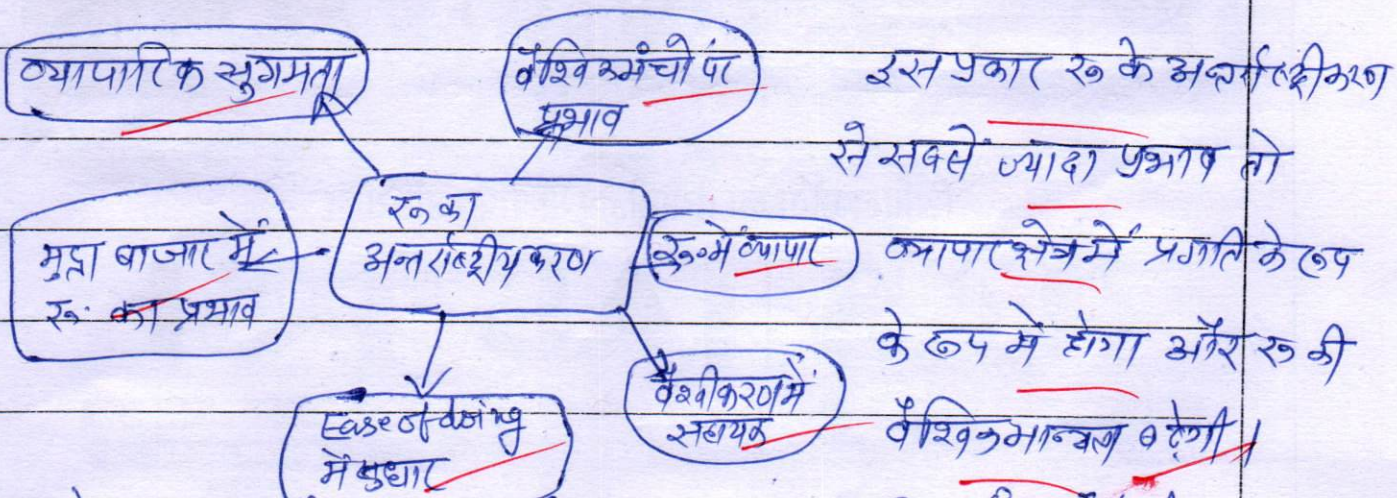 व्यापारिक सुगमता
वैश्विक मंचो पर
प्रभाव
रू का
अन्तर्राष्ट्रीयकरण
मुद्रा बाजार में
रू. का प्रभाव
रू. में व्यापार
Ease of doing
में सुधार
वैश्वीकरण में
सहायक
इस प्रकार रू के अन्तर्राष्ट्रीकरण
से सबसे ज्यादा प्रभाव तो
व्यापार क्षेत्र में प्रगति के रूप
के रूप में होगा और रू की
वैश्विक मान्यता बढ़ेगी।